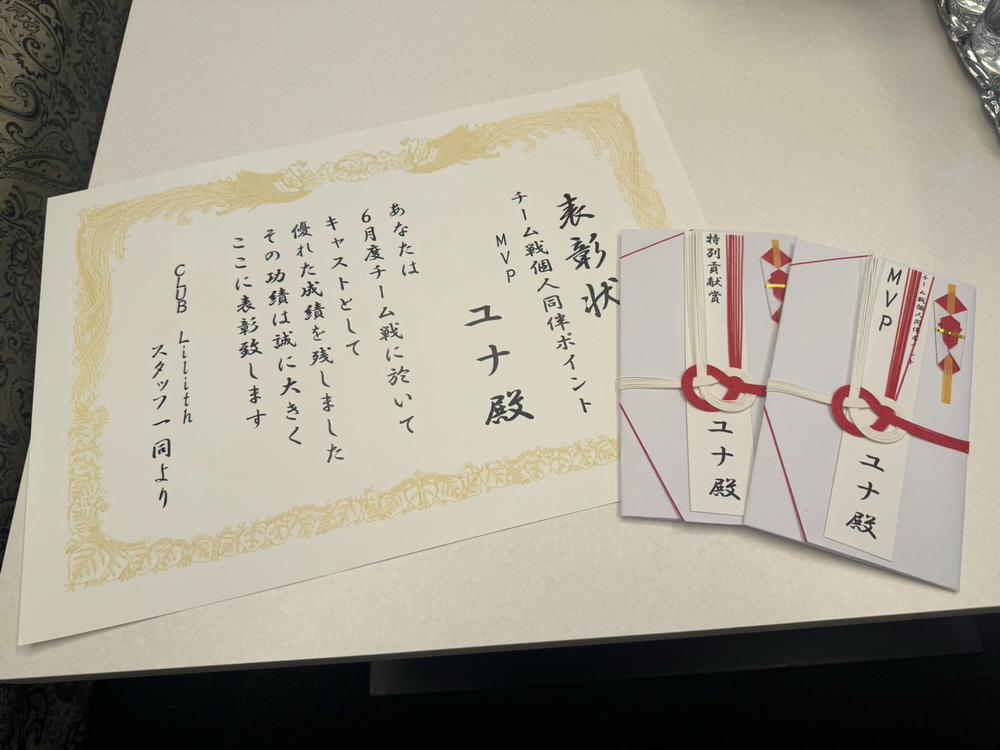 表彰状
チーム戦個人同伴ポイント
MVP
ユナ 殿
あなたは
6月度チーム戦に於いて
キャストとして
優れた成績を残しました
その功績は誠に大きく
ここに表彰致します
CLUB Lilith
スタッフ一同より
特別貢献賞
ユナ殿
チーム戦個人同伴ポイント
MVP
ユナ殿